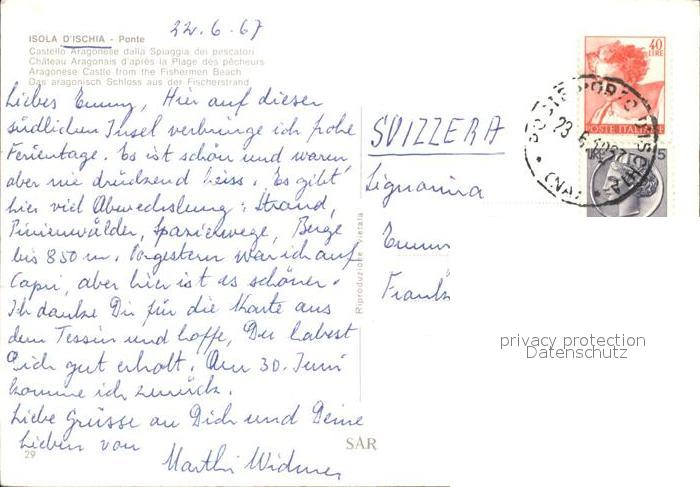 22.6.67
ISOLA D'ISCHIA - Ponte
Castello Aragonese dalla Spiaggia dei pescatori
Château Aragonais d'après la Plage des pêcheurs
Aragonese Castle from the Fishermen Beach
Das aragonisch Schloss aus der Fischerstrand
Liebes Emmy, Hier auf dieser
südlichen Insel verbringe ich frohe
Ferientage. Es ist schön und warm,
aber nie drückend heiss. Es gibt
hier viel Abwechslung: Strand,
Pinienwälder, Spazierwege, Berge
bis 850 m. Vorgestern war ich auf
Capri, aber hier ist es schöner.
Ich danke Dir für die Karte aus
dem Tessin und hoffe, Du habest
Dich gut erholt. Am 30. Juni
komme ich zurück.
Liebe Grüsse an Dich und Deine
Lieben von
Marthi Widmer
29
SAR
Riproduzione vietata
SVIZZERA
Signorina
Emmy
Frank
40
LIRE
POSTE ITALIANE
LIRE 15
23.6
(NA)
privacy protection
Datenschutz